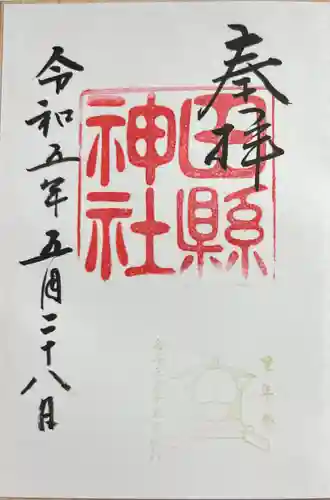 奉拝
田縣
神社
令和五年五月二十八日